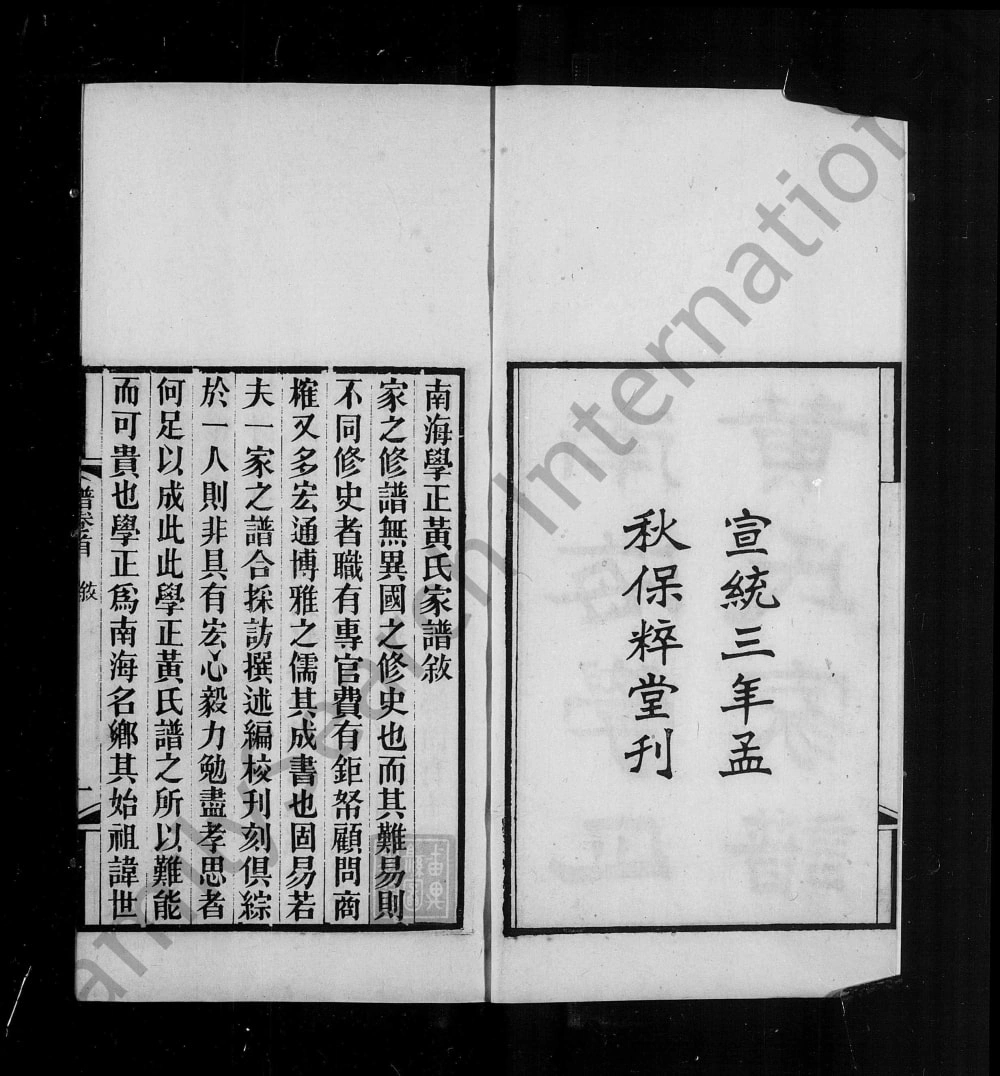 宣統三年孟
秋保粹堂刊
南海學正黃氏家譜敘
家之修譜無異國之修史也而其難易則
不同修史者職有專官費有鉅帑顧問商
榷又多宏通博雅之儒其成書也固易若
夫一家之譜合採訪撰述編校刊刻俱綜
於一人則非具有宏心毅力勉盡孝思者
何足以成此此學正黃氏譜之所以難能
而可貴也學正爲南海名鄉其始祖諱世
譜卷首 敘 一
Family Search International